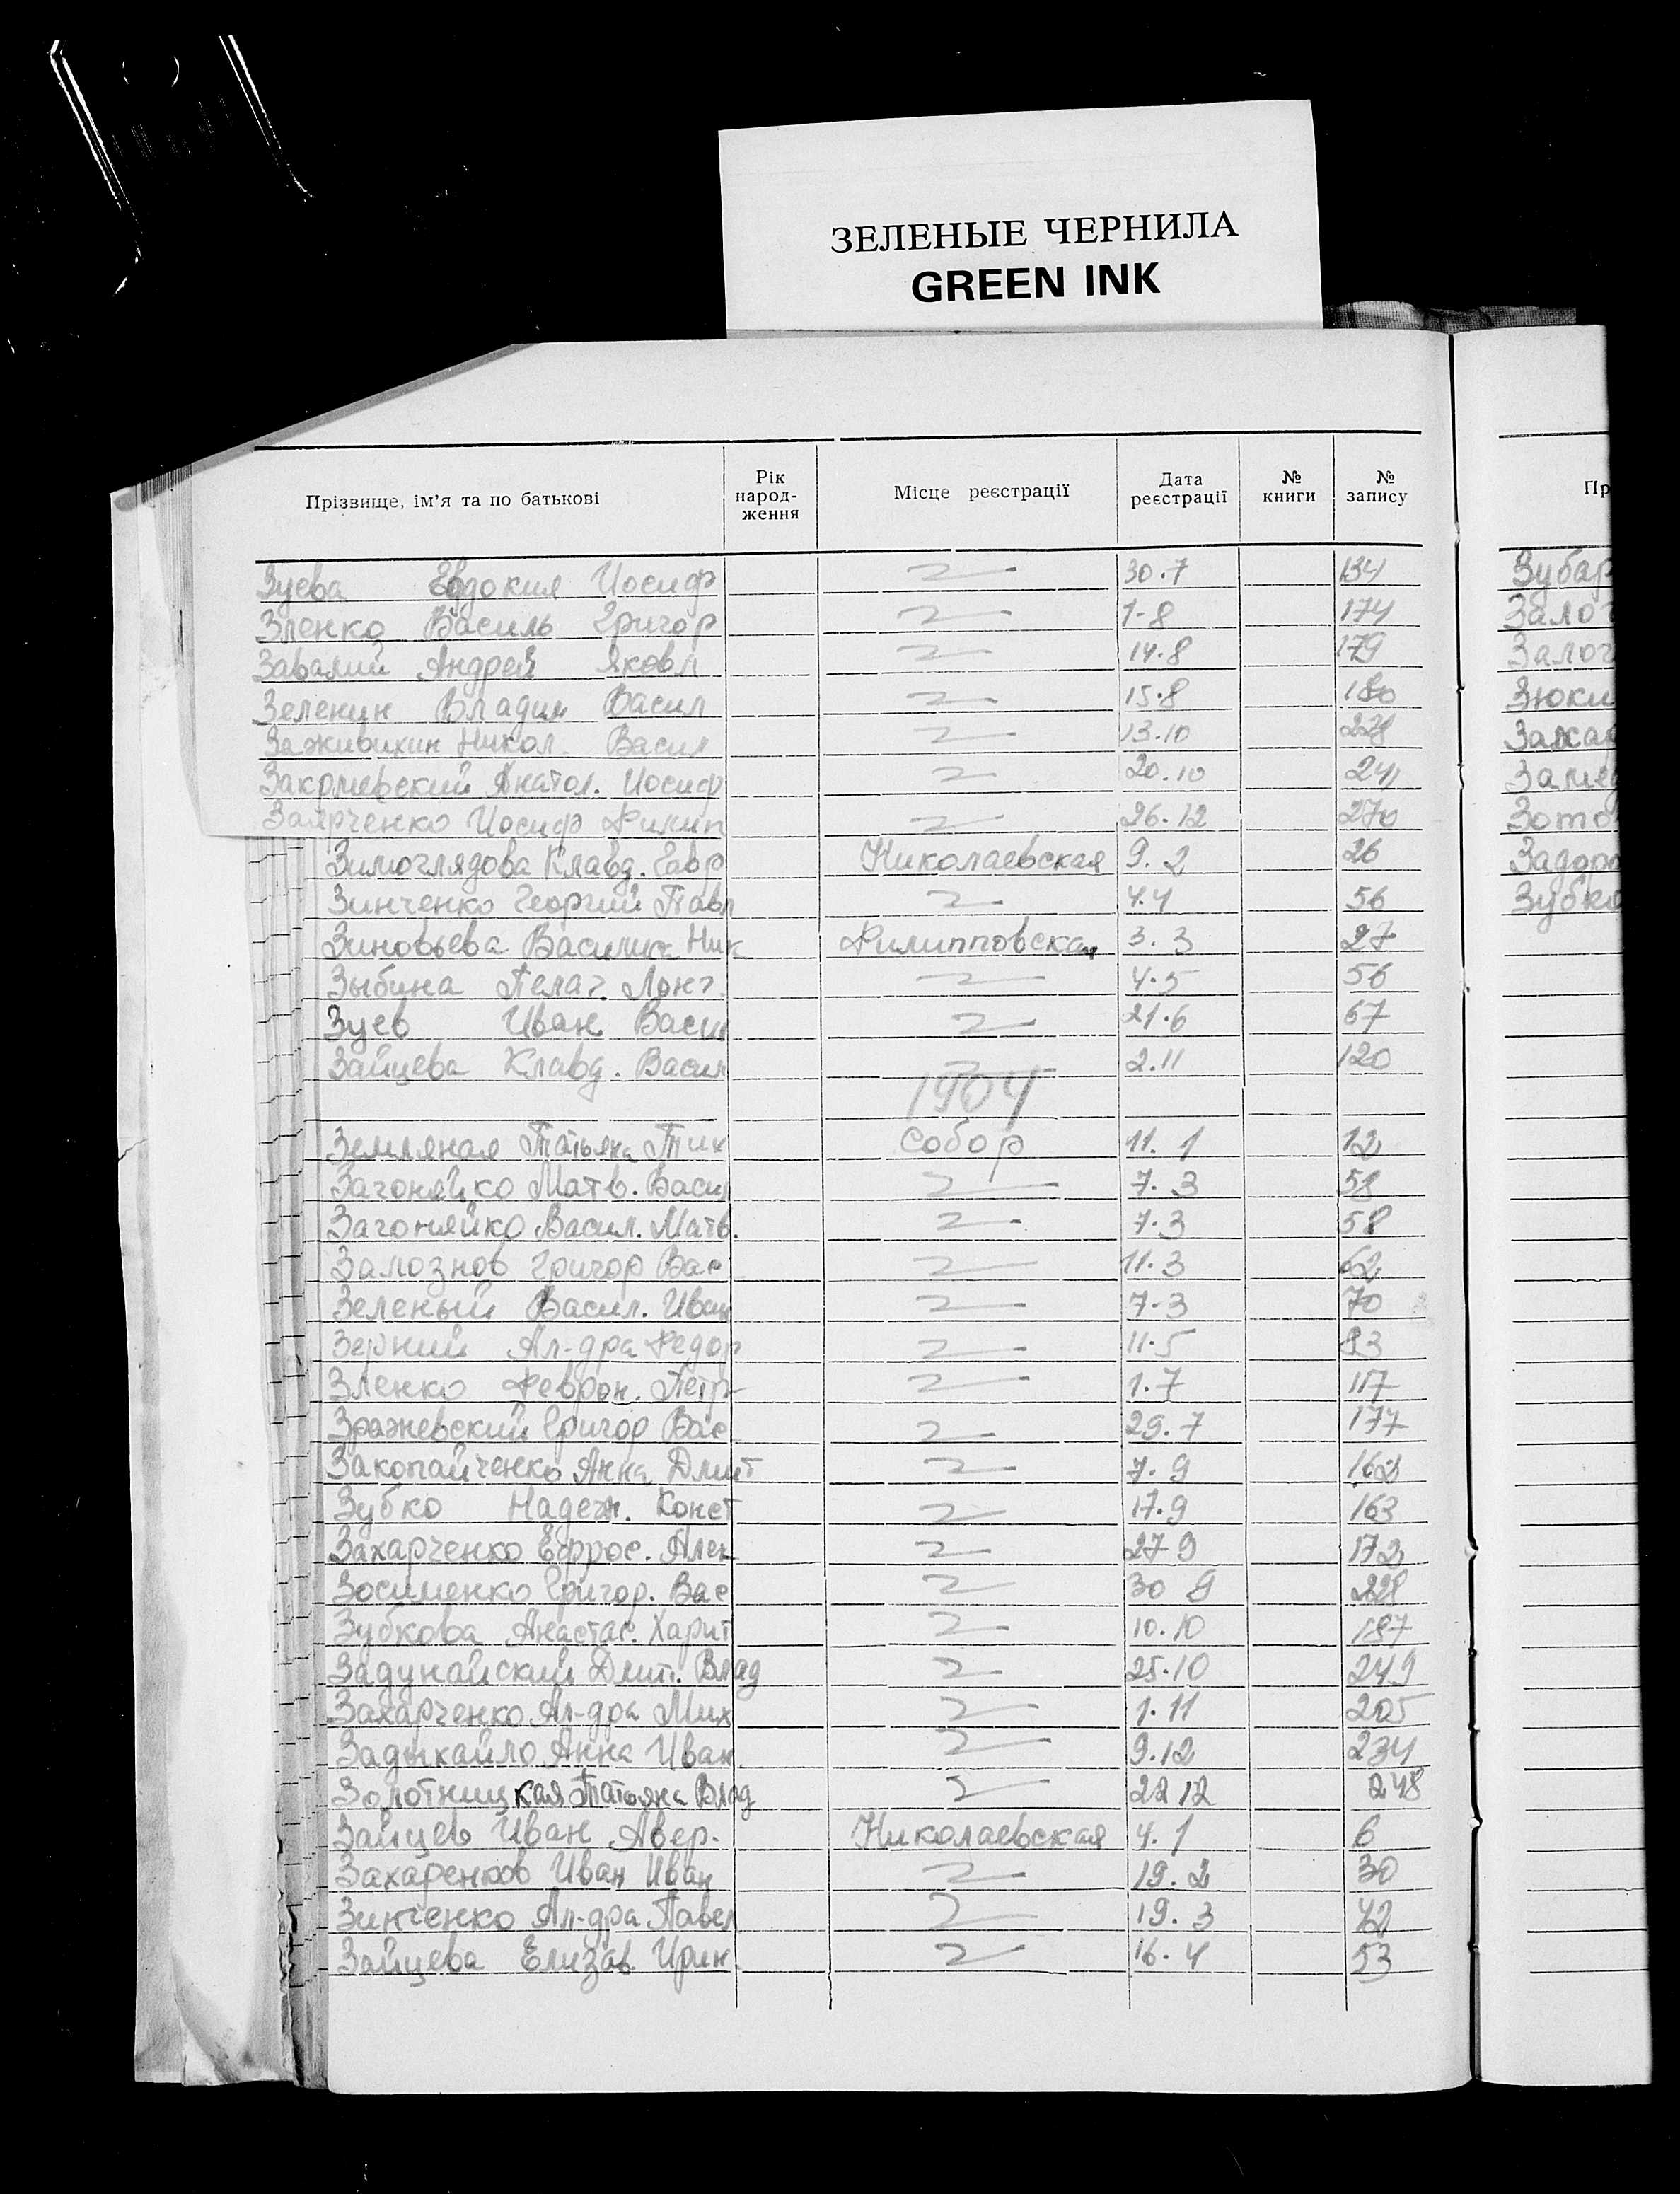 ЗЕЛЕНЫЕ ЧЕРНИЛА
GREEN INK
Прізвище, ім'я та по батькові Рік народ-ження Місце реєстрації Дата реєстрації № книги № запису Пр
Зуева Евдокия Иосиф 30.7 134 Зубар
Зленко Василь Григор 1-8 174 Залог
Завалий Андрей Яковл 14.8 179 Залог
Зеленин Владим Васил 15.8 180 Зюки
Заживихин Никол. Васил 13.10 228 Захар
Закржевский Анатол. Иосиф 20.10 241
Заярченко Иосиф Филип 26.12 270 Зото
Зимоглядова Клавд. Гавр Николаевская 9.2 26 Задор
Зинченко Георгий Павл 4.4 56 Зубко
Зиновьева Василиса Ник Филипповская 3.3 27
Зыбина Пелаг. Лонг. 4.5 56
Зуев Иван Васил 21.6 67
Зайцева Клавд. Васил 2.11 120
1904
Земляная Татьяна Тих собор 11.1 12
Загоняйко Матв. Васил 7.3 58
Загоняйко Васил. Матв. 7.3 58
Залознов Григор Вас 11.3 62
Зеленый Васил. Иван 7.3 70
Зерний Ал-дра Федор 11.5 93
Зленко Феврон. Петр 1.7 117
Зражевский Григор Вас 29.7 177
Закопайченко Анна Дмит 7.9 162
Зубко Надежд. Конст 17.9 163
Захарченко Ефрос. Алек 27 9 172
Зосименко Григор. Вас 30 9 228
Зубкова Анастас. Харит 10.10 187
Задунайский Дмит. Влад 25.10 249
Захарченко Ал-дра Мих 1.11 205
Задыхайло Анна Иван 9.12 234
Золотницкая Татьяна Влад 22 12 248
Зайцев Иван Авер. Николаевская 4.1 6
Захаренков Иван Иван 19.2 30
Зинченко Ал-дра Павел 19.3 42
Зайцева Елизав. Ирин. 16.4 53